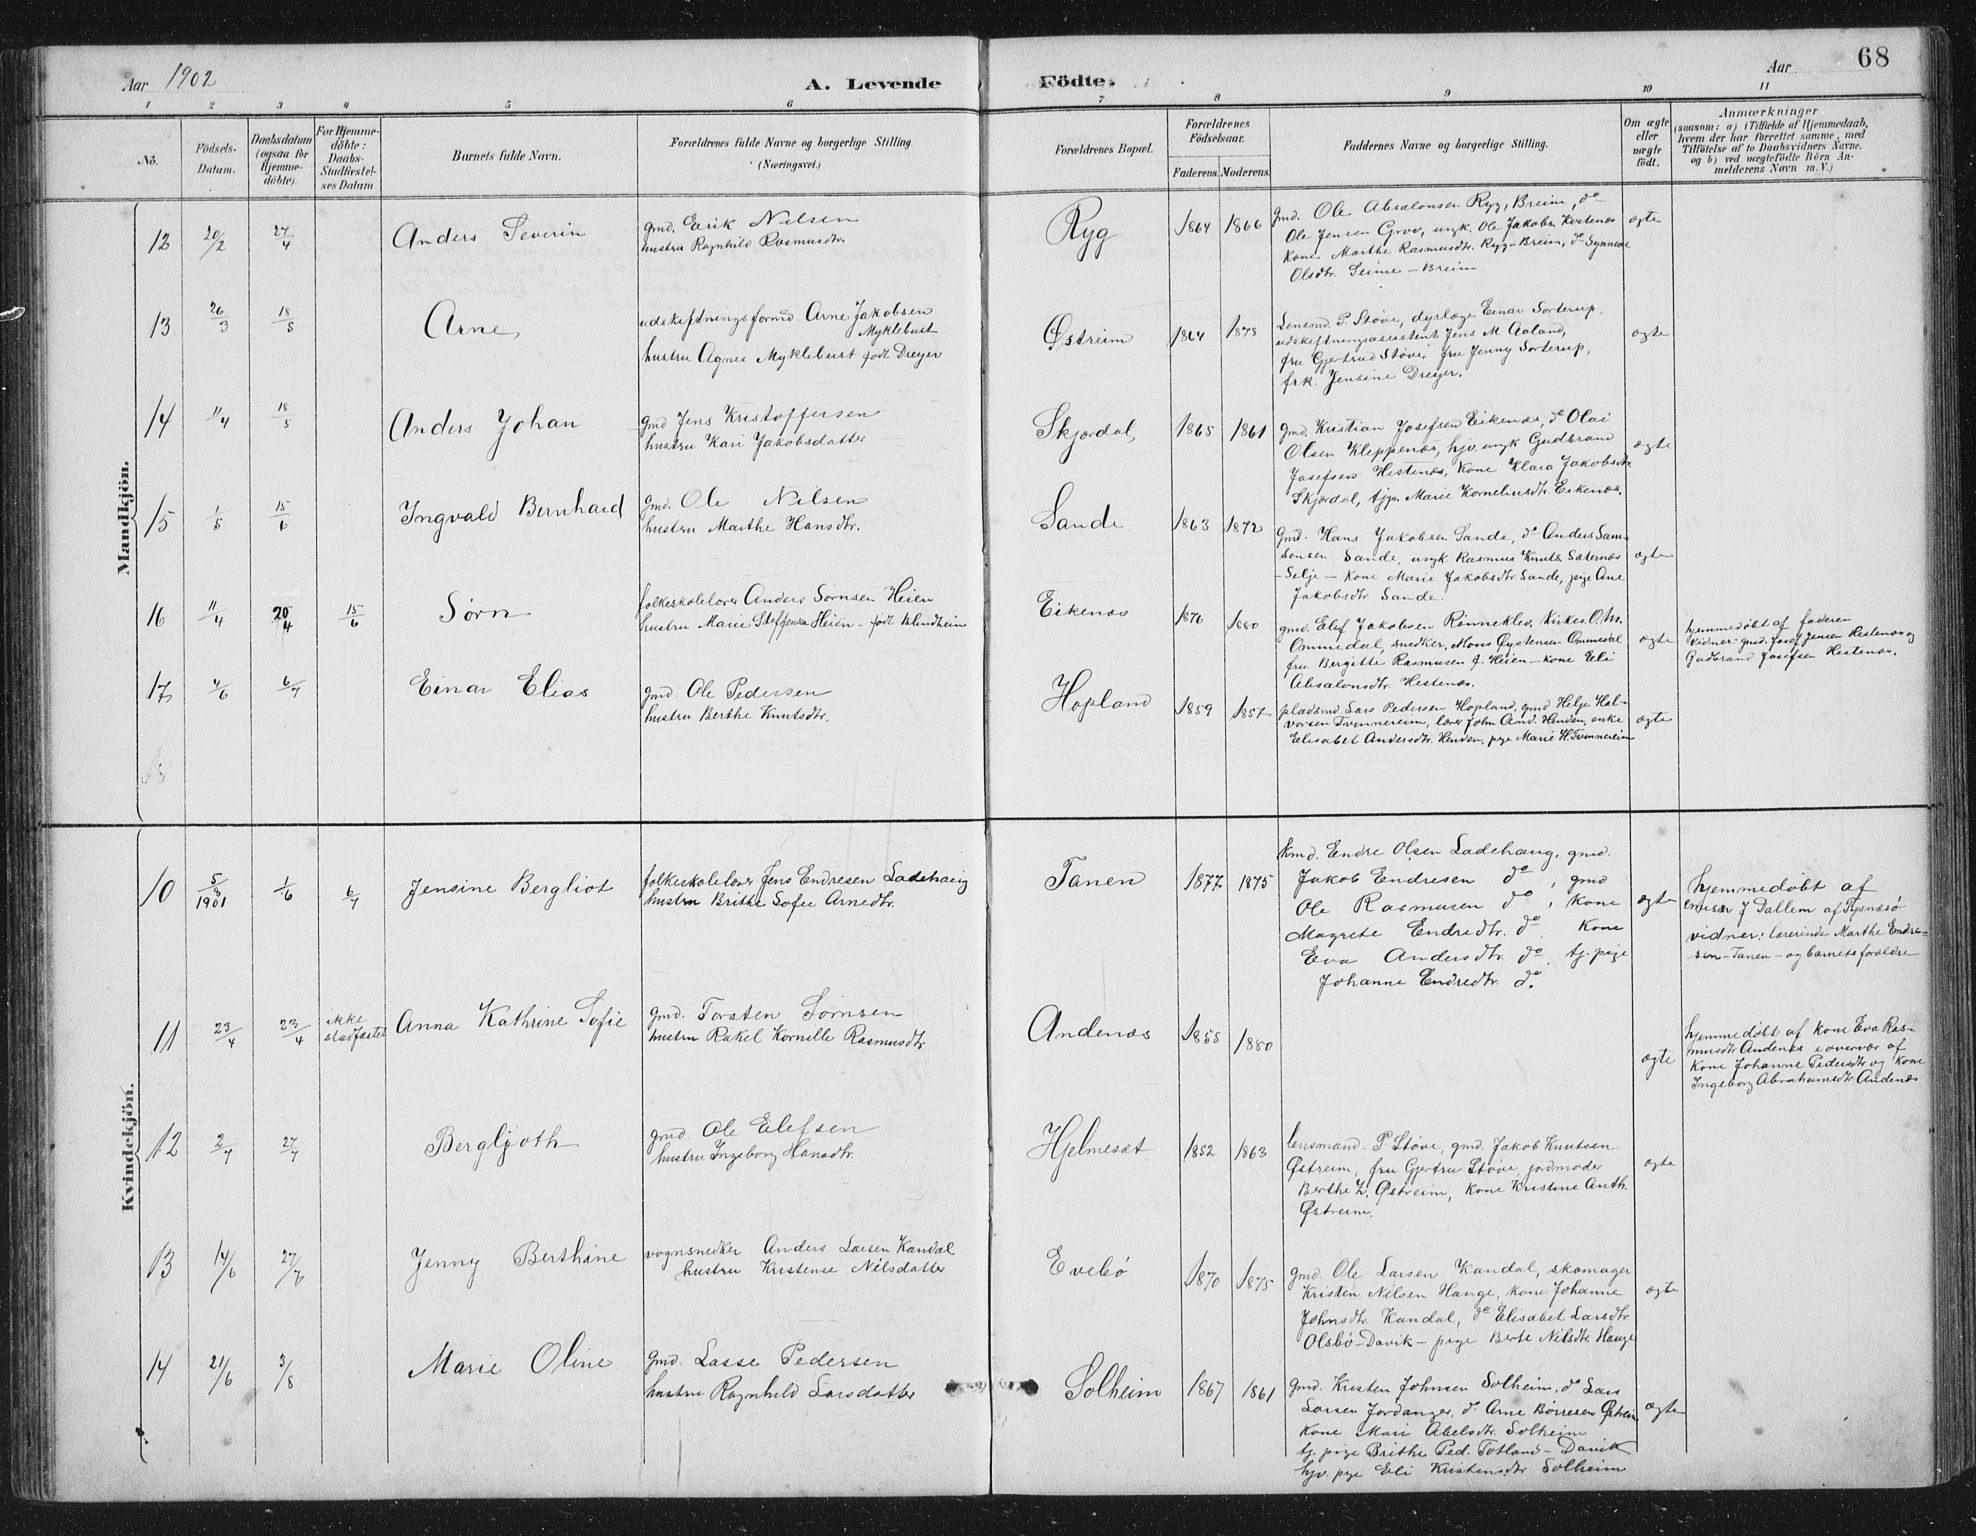 68
Aar 1902
A. Levende
Födte.
Aar
1 2 3 4 5 6 7 8 9 10 11
No.
Födsels-
Datum.
Daabsdatum
(ogsaa for
Hjemme-
döbte).
For Hjemme-
döbte:
Daabs-
Stadfæstel-
ses Datum.
Barnets fulde Navn.
Forældrenes fulde Navne og borgerlige Stilling
(Næringsvei.)
Forældrenes Bopæl.
Forældrenes
Födselsaar.
Faderens. Moderens.
Faddernes Navne og borgerlige Stilling.
Om ægte
eller
uægte
födt.
Anmærkninger
(saasom: a) i Tilfælde af Hjemmedaab,
hvem der har forrettet samme, med
Tilföielse af to Daabsvidners Navne.
og b) ved uægtefödte Börn An-
melderens Navn m. V.)
Mandkjön.
12 20/2 27/4 Anders Severin
gmd. Erik Nilsen
hustru Ragnhild Rasmusdtr.
Ryg 1864 1866
gmd. Ole Absalonsen Ryg, Breim, do
Ole Jensen Grov, ungk. Ole Jakobs. Kvitenæs
Kone. Marthe Rasmusdtr. Ryg-Breim, do Synneve
Olsdtr. Seime - Breim
ægte
13 26/3 18/5 Arne
udskiftningsformd. Arne Jakobsen
Myklebust
hustru Agnes Myklebust født Dreyer
Østreim 1864 1878
Lensmd. P. Støve, dyrlæge Einar Sorterup,
udskiftningsassistent Jens M. Aaland,
fru Gjertrud Støve, fru Jenny Sorterup,
frk. Jensine Dreyer.
ægte
14 11/4 18/5 Anders Johan
gmd Jens Kristoffersen
hustru Kari Jakobsdatter
Skjørdal 1865 1861
gmd. Kristian Josefsen Eikenæs, do Olai
Olsen Kleppenæs, hjv. ungk Gudbrand
Josefsen Hestenæs, Kone Klara Jakobsdtr.
Skjørdal, tjp. Marie Korneliusdtr. Eikenæs.
ægte
15 1/5 15/6 Ingvald Bernhard
gmd. Ole Nilsen
hustru Marthe Hansdtr.
Sande 1863 1872
gmd. Hans Jakobsen Sande, do Anders Sam-
sonsen Sande, ungk. Rasmus Knuts. Sæternæs
-Selje - Kone Marie Jakobsdtr. Sande, pige Ane
Jakobsdtr Sande.
ægte
16 11/4 20/4 15/6 Sørn
folkeskolelærer Anders Sørnsen Heien
hustru Marie Steffensen Heien - født Blindheim
Eikenæs 1876 1880
gmd. Elef Jakobsen Rønneklev, Kirkes. O. Ms.
Ommedal, snedker, Mons Øystensen Ommedal
fru Bergitte Rasmusen f. Heien - kone Eli
Absalonsdtr. Hestenæs.
ægte
hjemmedøbt af faderen
vidner: gmd. Josef Jensen Hestenæs og
Gudbrand Josefsen Hestenæs.
17 4/6 6/7 Einar Elias
gmd. Ole Pedersen
hustru Berthe Knutsdtr.
Hopland 1859 1857
pladsmd. Lars Pedersen Hopland, gmd Helje Hal-
vorsen Tvinnereim, lærer John And. Henden, enke
Elisabet Andersdtr. Henden, pige Marie H. Tvinnereim
ægte
Kvindekjön.
10 5/8 1901 1/6 6/7 Jensine Bergliot
folkeskolelærer Jens Endresen Ladehaug
hustru Brithe Sofie Arnedtr.
Tanen 1877 1875
Kmd. Endre Olsen Ladehaug, gmd.
Jakob Endresen do, gmd
Ole Rasmusen do, kone
Magrete Endredtr. do. Kone
Eva Andersdtr. do. tj. pige
Johanne Endredtr. do.
ægte
hjemmedøbt af
emisær J Dallem af Tysnæsø
vidner: lærerinde Marthe Endre-
sen - Tanen - og barnets forældre
11 23/4 23/4 ikke
stadfæstet
Anna Kathrine Sofie
gmd. Torsten Sørnsen
hustru Rakel Kornelle Rasmusdtr.
Andenæs 1855 1880
ægte
hjemmedøbt af kone Eva Ras-
musdtr Andenæs i overvær af
Kone Johanne Pedersdtr og kone
Ingeborg Abrahamsdtr Andenæs
12 2/7 27/7 Bergljoth
gmd. Ole Elefsen
hustru Ingeborg Hansdtr.
Hjelmeset 1852 1863
lensmand. P Støve, gmd. Jakob Knutsen
Østreim, fru Gjertru Støve, jordmoder
Berthe L. Østreim, Kone Kristine Anth.
Østreim.
ægte
13 14/6 27/7 Jenny Berthine
vognsnedker Anders Larsen Kandal
hustru Kristense Nilsdatter
Evebø 1870 1875
gmd. Ole Larsen Kandal, skomager
Kristen Nilsen Hauge, kone Johanne
Johnsdtr. Kandal, do Elisabet Larsdtr
Olsbø-Davik - pige Berte Nilsdtr. Hauge
ægte
14 21/6 3/8 Marie Oline
gmd. Lasse Pedersen
hustru Ragnhild Larsdatter
Solheim 1867 1861
gmd. Kristen Johnsen Solheim, do Lars
Larsen Jordanger, do Arne Børresen Østreim
Kone Mari Abelsdtr. Solheim
tj. pige Brithe Ped. Totland - Davik
hjv. pge Eli Kristensdtr Solheim
ægte